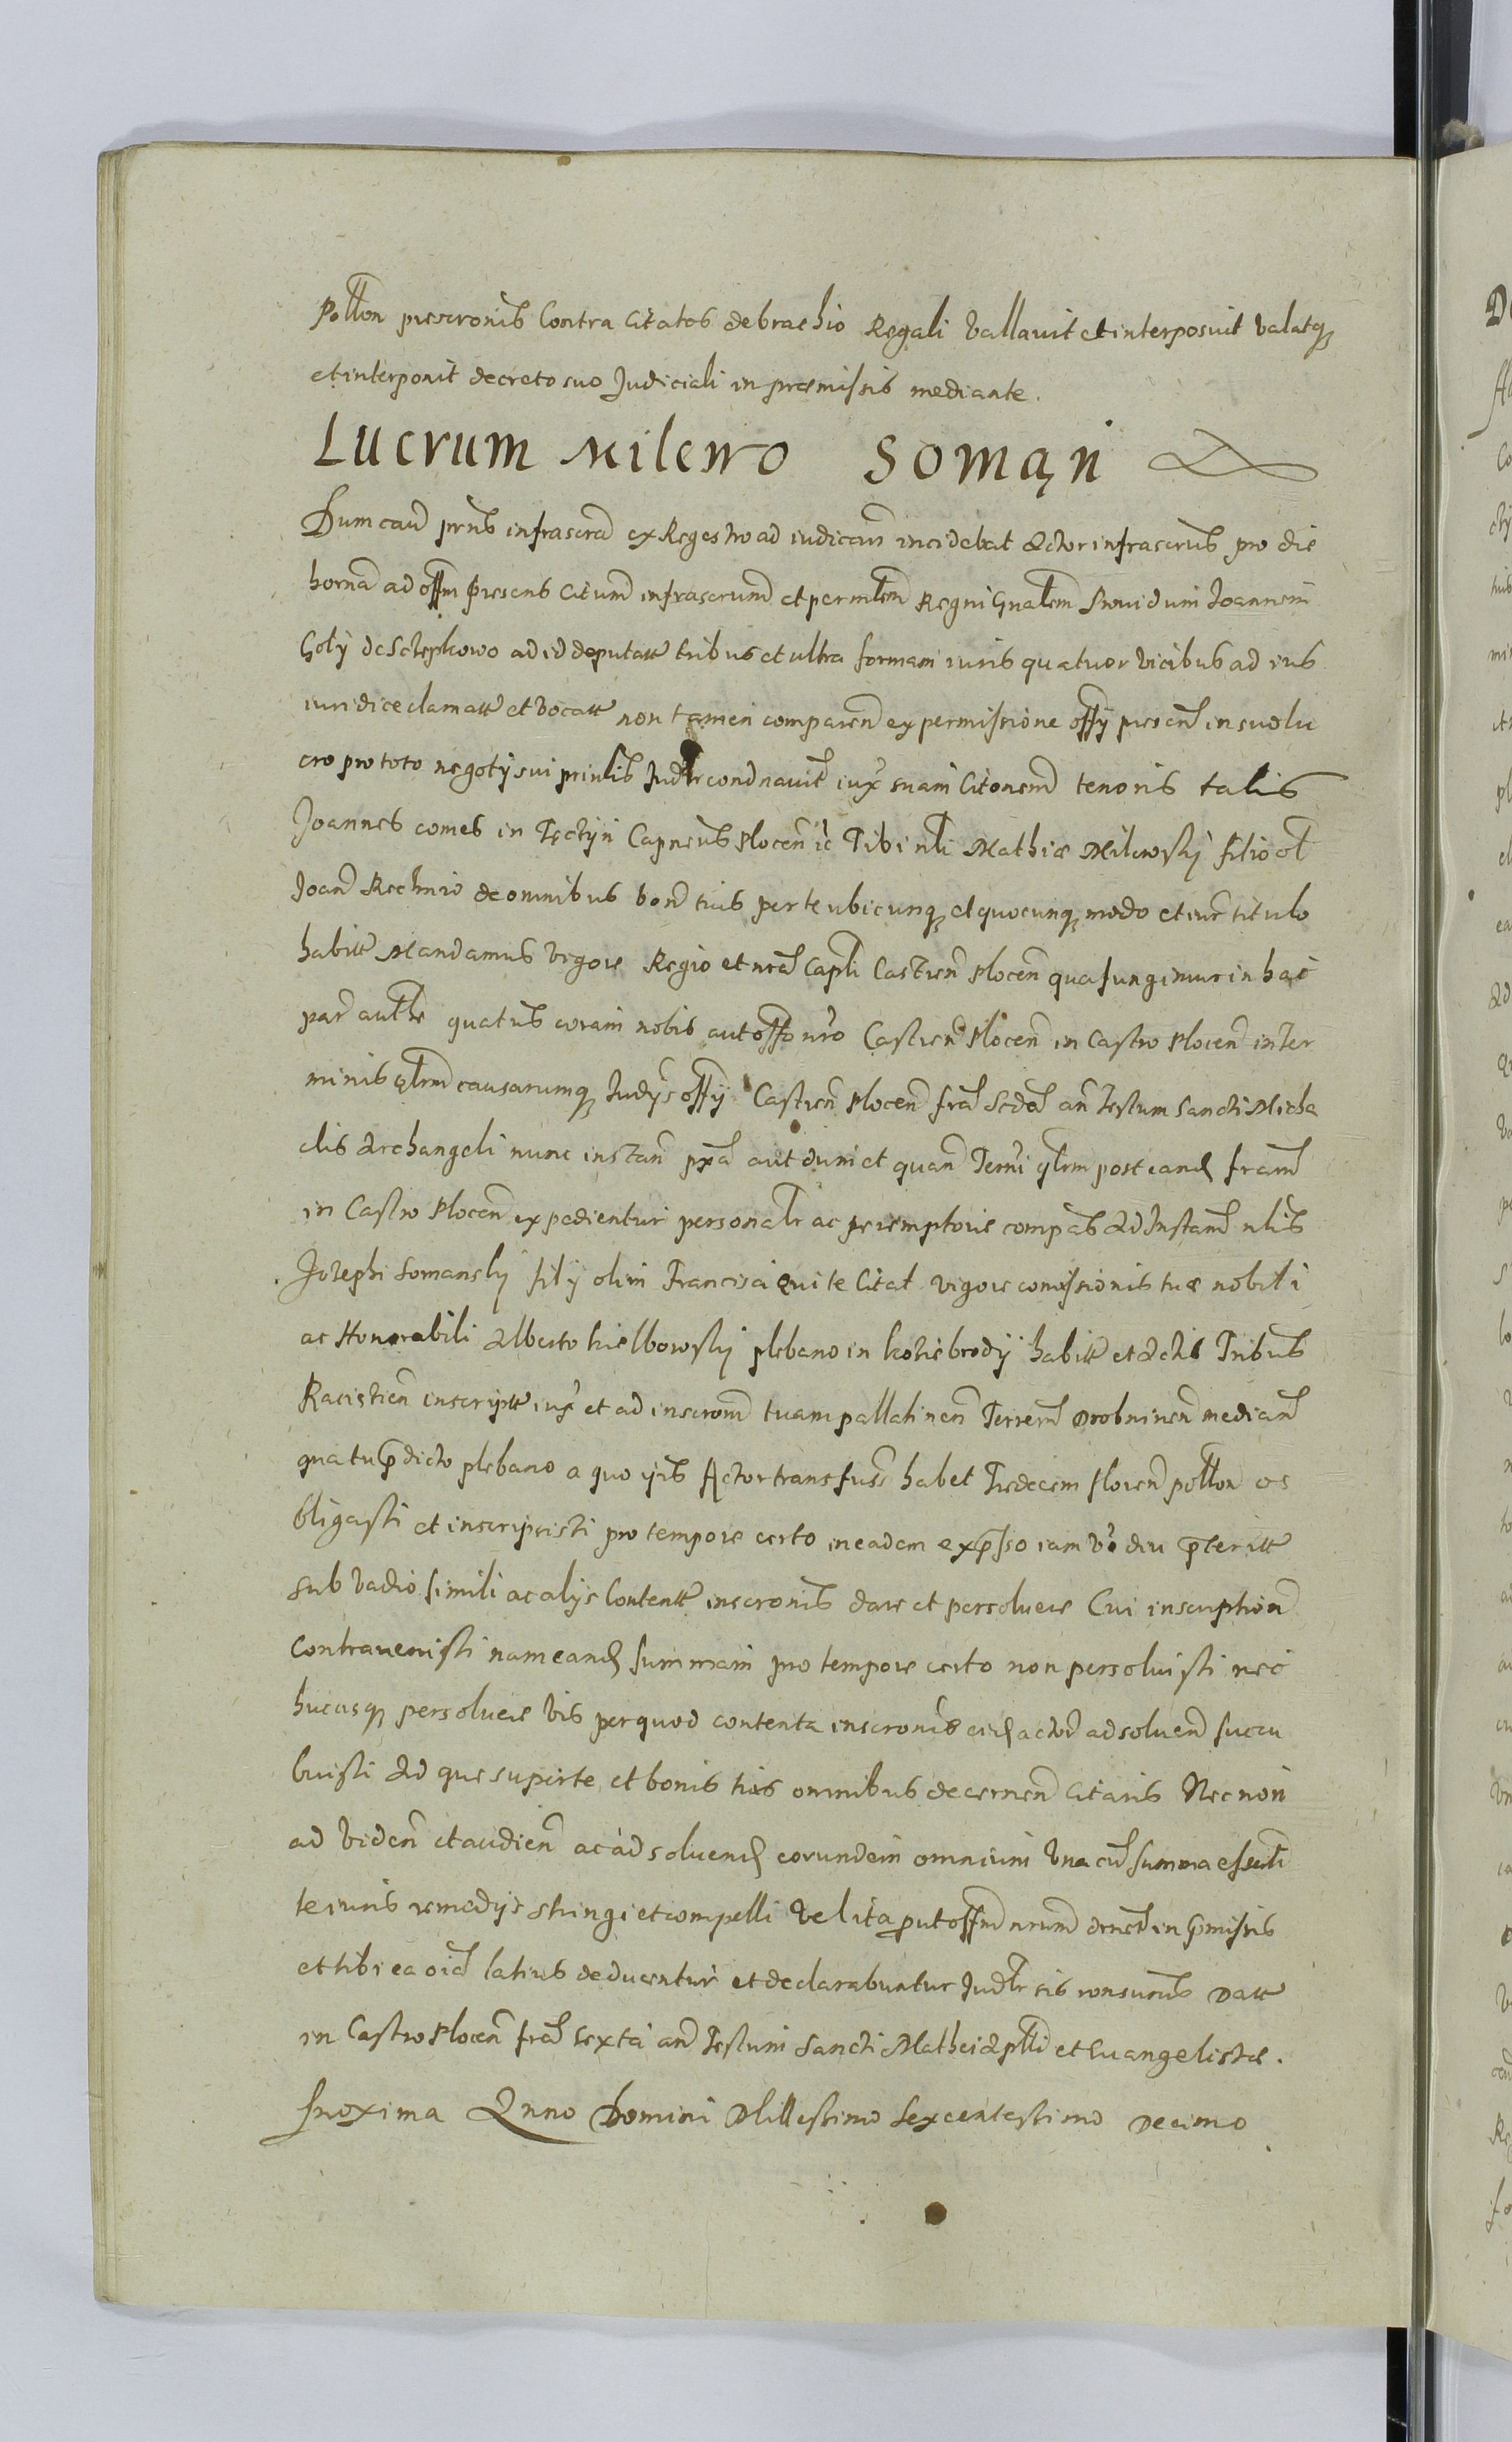 Pollon prescronis Contra Citatos de brachio Regali Vallavit et interposuit Valatq
et interponit decreto suo Judiciali in præmissis mediante.
Lucrum Milewo Soman
Dum caū prns infrascra ex Regestro ad iudicań incidebat Actor infrascrus pro die
horna ad offm presens citum infrascrum et permlem Regni Gnalem Providum Joannem
Goły de Sctepkowo ad id deputatt tribus et ultra formam iuris quatuor Vicibus ad ius
iuridice clamatt et Vocatt non tamen comparen ex permissione offy presen in suo lu
cro pro toto negoty sui prinlis Judlr condnavit iux suam Citonem tenoris talis
Joannes comes in Tęctyn Capneus Plocen ic Tibi nli Mathiæ Milewsky filio ol
Joan Rechnio de omnibus bon tuis per te ubicunq et quocunq modo et iure titulo
habitt Mandamus Vigore Regio et nra Capli Castren Plocen qua fungimur in hac
par autte quatus coram nobis aut offo nro Castren Plocen in Castro Plocen in ter
minis qlrm causarumq Judys offy Castren Plocen fra Scda an festum Sancti Micha
elis Archangeli nunc instan pxa aut dum et quan Termi qlrm post eand fram
in Castro Plocen expedientur personalr ac peremptorie compas Ad Instam nlis
Josephi Somansky fily olim Francisci Qui te Citat Vigore comissionis tuæ nobili
ac Honorabili Alberto Kielbowsky plebano in Koziebrody habitt et Actis Tribus
Raciszien inscriptt iux et ad inscrom tuam pallatinen Terrem Drobninen median
qua tu pdicto plebano a quo ijs Actor transfus habet Tredecem floren pollon o
bligasti et inscripsisti pro tempore certo in eadem expsso iam Vo diu pteritt
sub Vadio simili ac alys Contentt inscronis dare et persoluere Cui inscription
contravenisti nam eand summam pro tempore certo non persoluisti nec
hucusq persoluere Vis per quod contenta inscronis eid actori ad soluen succu
buisti Ad quæ super te et bonis tuis omnibus decernen Citaris Nec non
ad Viden et audien ac ad soluend eorundem omnium Vna cū summa essenli
te iuris remedys stringi et compelli Vel ita put offm nrum decret in pmissis
et tibi ea oia latius deducentur et declarabuntur Judlr sis ronsurus Datt
in Castro Plocen fra Sexta an festum Sancti Mathei Aplli et Euangelistæ.
proxima Anno Domini Millessimo Sexcentessimo Decimo